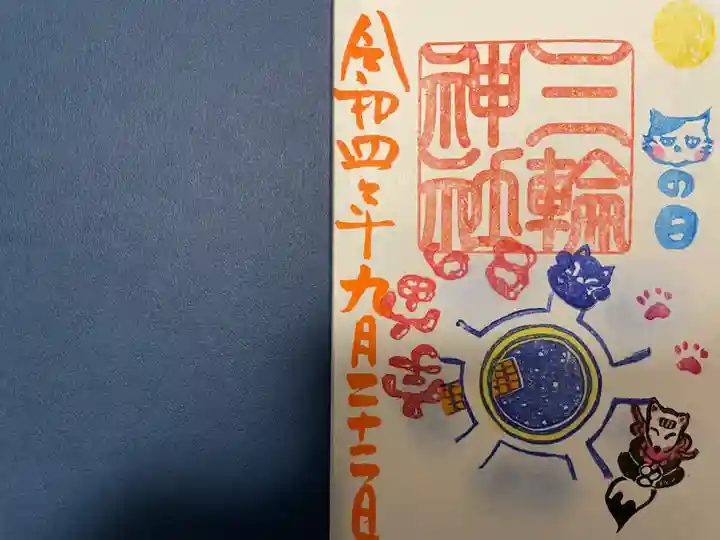 三輪
神社
の日
令和四年九月二十二日